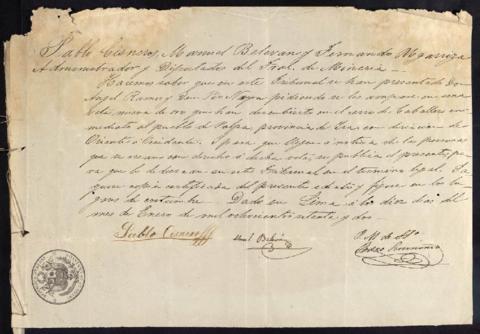 Pablo Cisneros, Manuel Belevan y Fernando
Administrador y Diputados del Tral. de Minería
Hacemos saber que en este Tribunal se han presentado Dn
Angel Ramos y Don pidiendo se les ampare en una
veta, mina de oro que han descubierto en el cerro de Caballero in-
mediato al pueblo de Palpa provincia de Ica con direccion de
Oriente á Occidente. Y para que llegue á noticia de las personas
que se crean con derecho á dicha veta, se publica el presente pa
ra que lo deduzcan en este Tribunal en el termino legal. Sa
quese copia certificada del presente edicto y fijese en los lu
gares de costumbre. Dado en Lima á los diez dias del
mes de Enero de mil ochocientos setenta y dos
Pablo Cisneros
Manl. Belevan
P. M. de